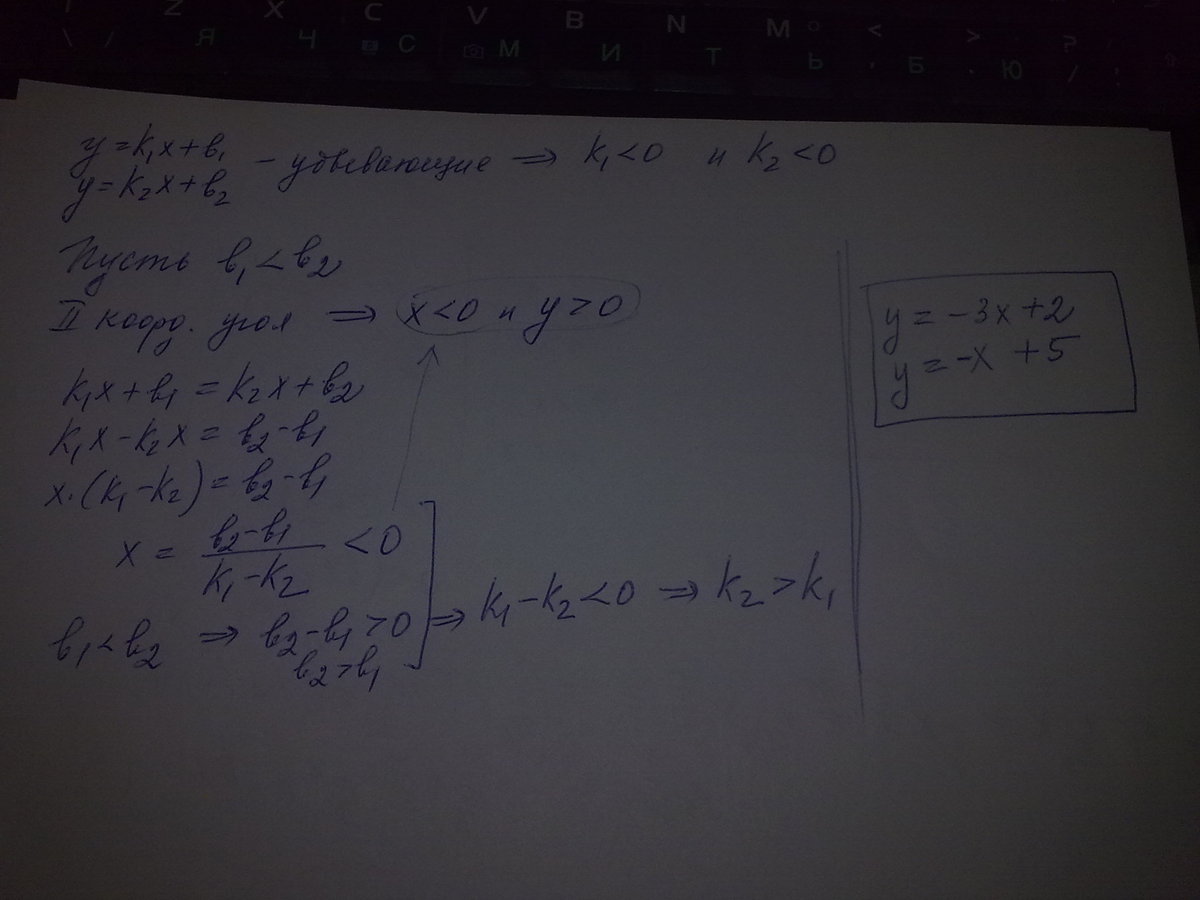 Z X C V B N M < > ?
\ / Я Ч С М И Т Ь , Б . Ю /
y = k₁x + b₁
y = k₂x + b₂ – убывающие ⇒ k₁ < 0 и k₂ < 0
Пусть b₁ < b₂
II коорд. угол ⇒ x < 0 и y > 0
k₁x + b₁ = k₂x + b₂
k₁x – k₂x = b₂ – b₁
x·(k₁ – k₂) = b₂ – b₁
x = (b₂ – b₁)/(k₁ – k₂) < 0
b₁ < b₂ ⇒ b₂ – b₁ > 0 ] ⇒ k₁ – k₂ < 0 ⇒ k₂ > k₁
b₂ > b₁
y = –3x + 2
y = –x + 5